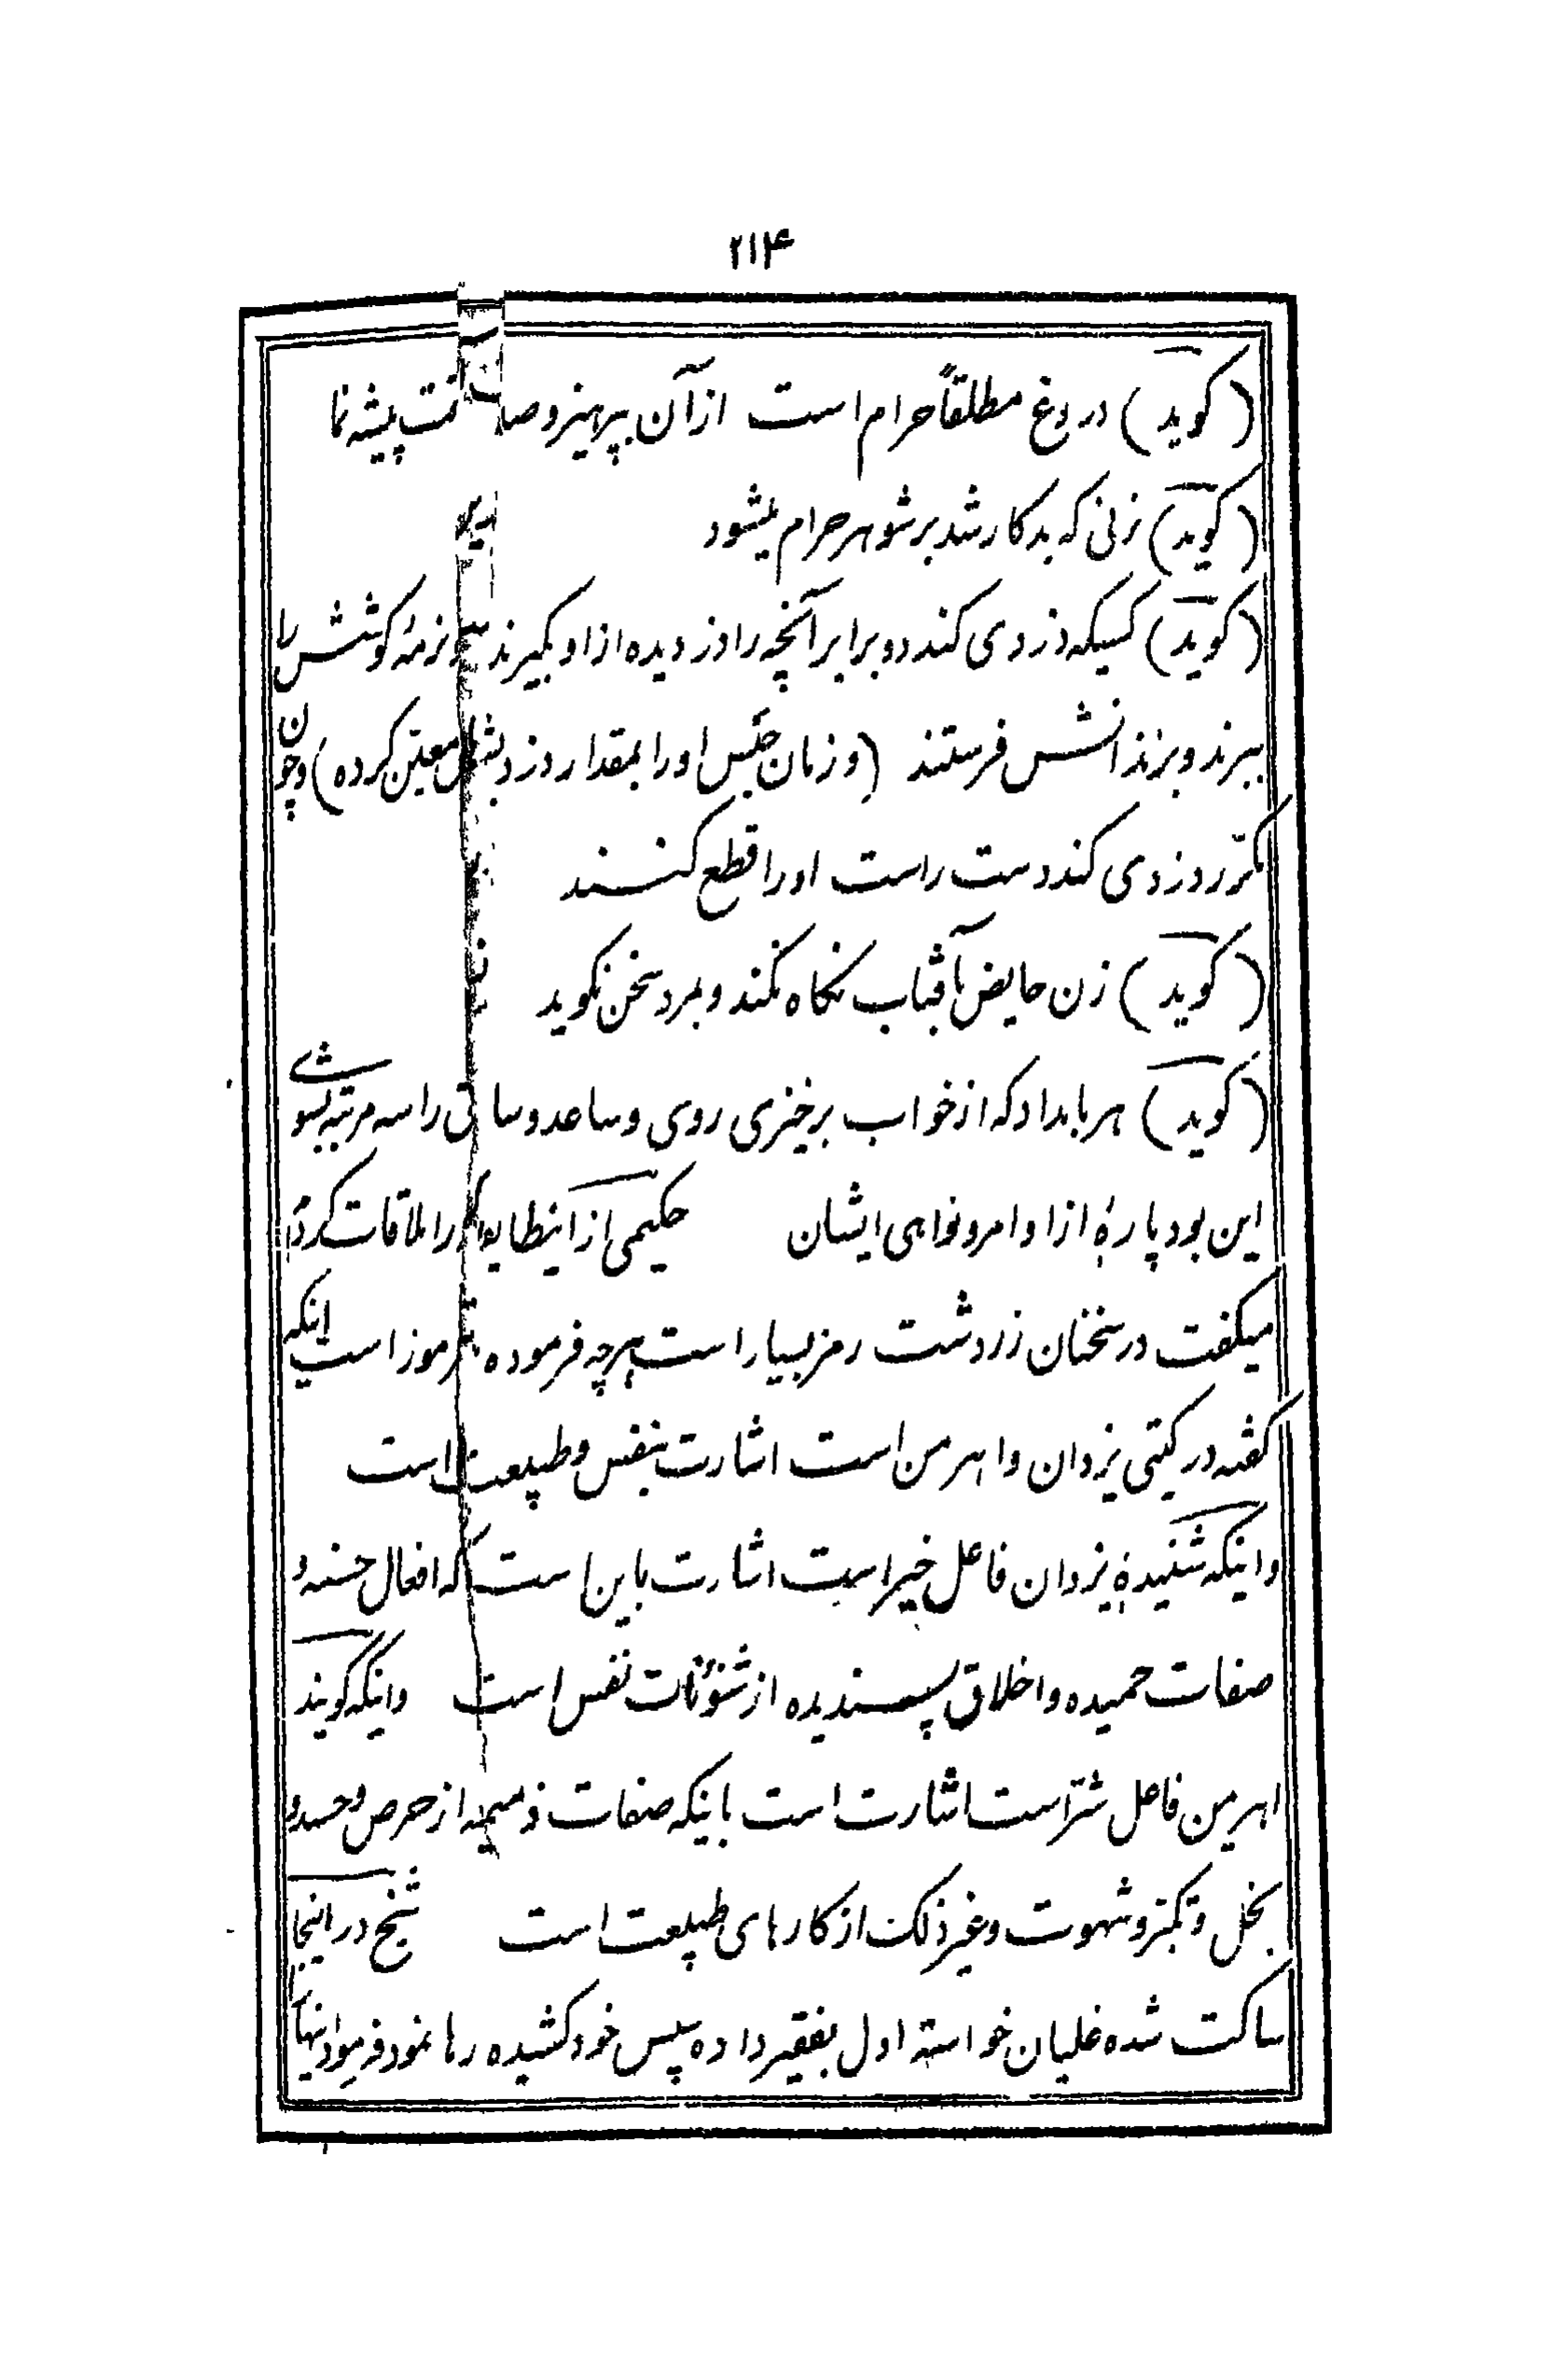 ۲۱۴
(گوید) دروغ مطلقاً حرام است از آن بپرهیز و پیشه نما
(گوید) زنی که بدکار شد بر شوهر حرام میشود
(گوید) کسیکه دزدی کند دو برابر آنچه را دزدیده از او بگیرند نرمهٔ گوشش را
ببرند و بزندانش فرستند (و زمان حبس او را بمقدار دزدیش معیّن کرده) و چون
مکرّر دزدی کند دست راست او را قطع کنند
(گوید) زن حایض بآفتاب نگاه نکند و بمرد سخن نگوید
(گوید) هر بامداد که از خواب برخیزی روی و ساعد و ساق را سه مرتبه بشوی
این بود پارهٔ از اوامر و نواهی ایشان حکیمی از اینطایفه را ملاقات کردم
میگفت در سخنان زردشت رمز بسیار است هرچه فرموده مرموز است اینکه
گفته در گیتی یزدان و اهرمن است اشارت بنفس و طبیعت است
و اینکه شنیدهٔ یزدان فاعل خیر است اشارت باین است که افعال حسنه و
صفات حمیده و اخلاق پسندیده از شئونات نفس است و اینکه گویند
اهریمن فاعل شرّ است اشارت است باینکه صفات ذمیمه از حرص و حسد و
بخل و تکبّر و شهوت و غیر ذلک از کارهای طبیعت است شیخ در اینجا
ساکت شده غلیان خواسته اول بفقیر داده سپس خود کشیده رها نمود فرمود اینها